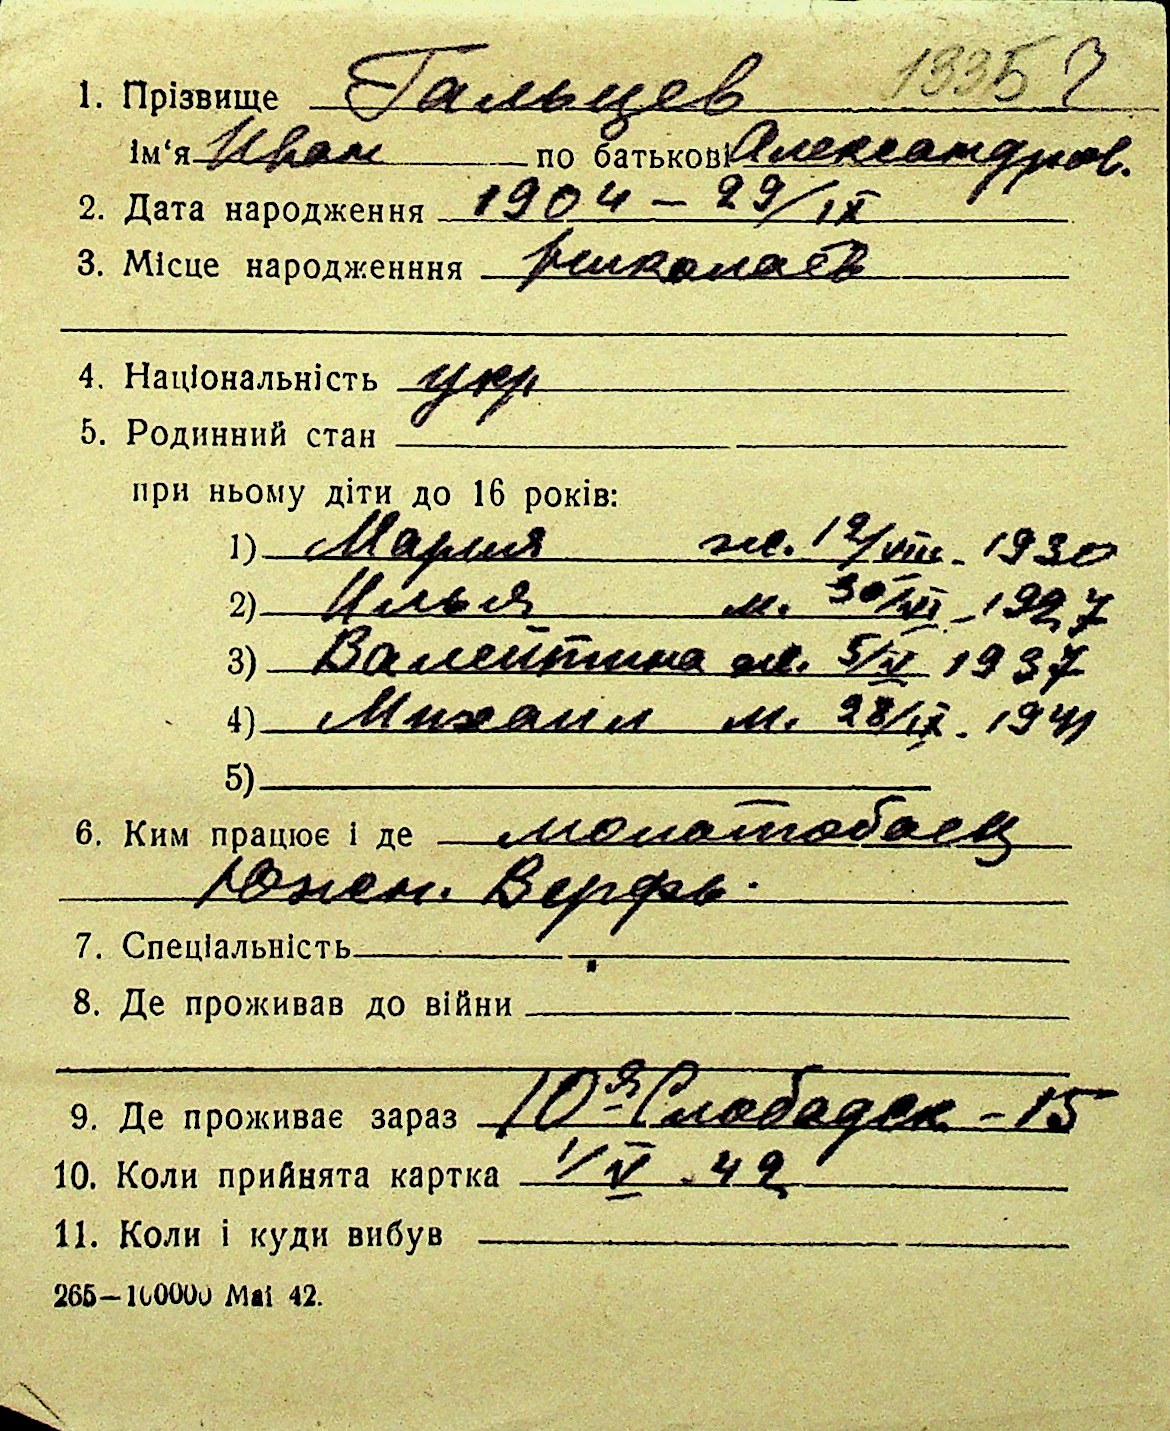 1335 ?
1. Прізвище Гальцев
ім'я Иван по батькові Александров.
2. Дата народження 1904 – 29/IX
3. Місце народженння Николаев
4. Національність укр
5. Родинний стан
при ньому діти до 16 років:
1) Мария ж. 12/VIII - 1930
2) Илья м. 30/VI - 1927
3) Валентина ж. 5/V 1937
4) Михаил м. 28/IX - 1941
5)
6. Ким працює і де молотобоец
Южн. Верфь.
7. Спеціальність
8. Де проживав до війни
9. Де проживає зараз 10я Слободск - 15
10. Коли прийнята картка 1/V 42
11. Коли і куди вибув
265—100000 Маі 42.